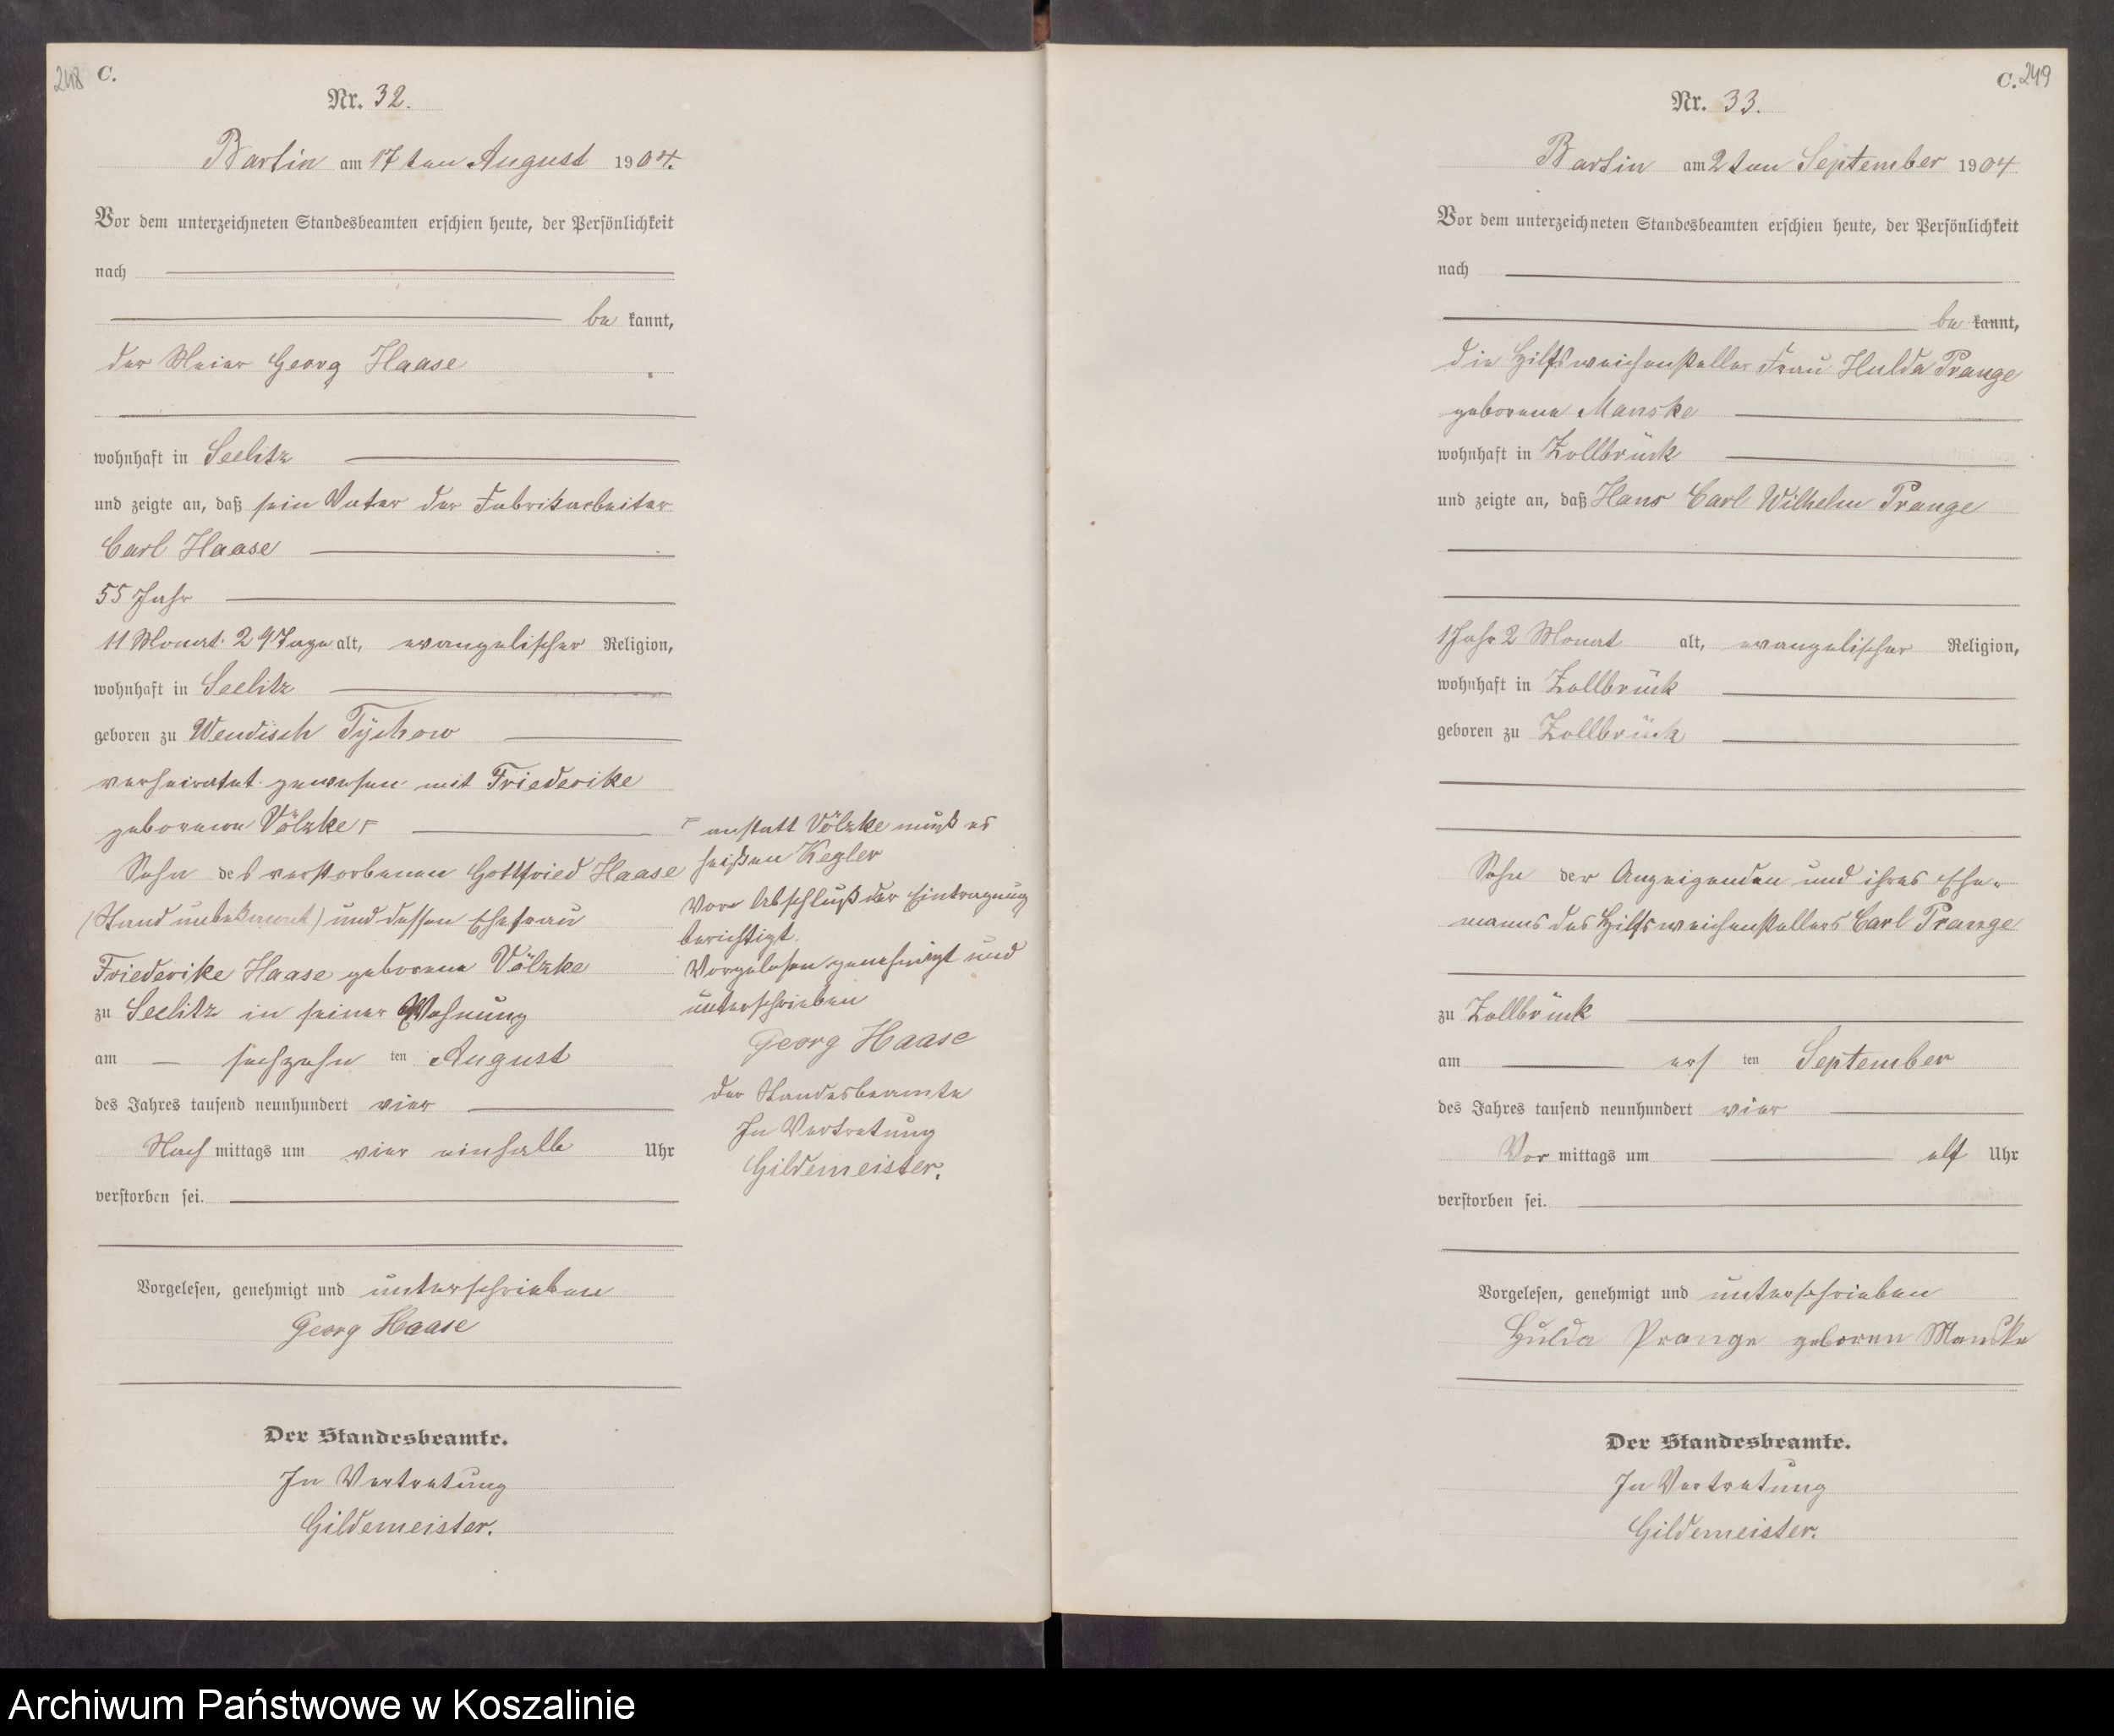 248 C.
Nr. 32.
Bartin am 17ten August 1904.
Vor dem unterzeichneten Standesbeamten erschien heute, der Persönlichkeit
nach
be kannt,
der Meier Georg Haase
wohnhaft in Seelitz
und zeigte an, daß sein Vater der Fabrikarbeiter
Carl Haase
55 Jahr
11 Monat 29 Tage alt, evangelischer Religion,
wohnhaft in Seelitz
geboren zu Wendisch Tychow
verheiratet gewesen mit Friederike
geborene Völzke ⌜
Sohn des verstorbenen Gottfried Haase
(Stand unbekannt) und dessen Ehefrau
Friederike Haase geborene Völzke
zu Seelitz in seiner Wohnung
am sechzehn ten August
des Jahres tausend neunhundert vier
Nach mittags um vier einhalb Uhr
verstorben sei.
Vorgelesen, genehmigt und unterschrieben
Georg Haase
Der Standesbeamte.
In Vertretung
Gildemeister.
⌜ anstatt Völzke muß es
heißen Kegler
Vor Abschluß der Eintragung
berichtigt.
Vorgelesen genehmigt und
unterschrieben
Georg Haase
der Standesbeamte
In Vertretung
Gildemeister.
C. 249
Nr. 33.
Bartin am 2ten September 1904
Vor dem unterzeichneten Standesbeamten erschien heute, der Persönlichkeit
nach
be kannt,
die Hilfsweichensteller Frau Hulda Prange
geborene Manske
wohnhaft in Zollbrück
und zeigte an, daß Hans Carl Wilhelm Prange
1 Jahr 2 Monat alt, evangelischer Religion,
wohnhaft in Zollbrück
geboren zu Zollbrück
Sohn der Anzeigenden und ihres Ehe-
manns des Hilfsweichenstellers Carl Prange
zu Zollbrück
am ers ten September
des Jahres tausend neunhundert vier
Vor mittags um elf Uhr
verstorben sei.
Vorgelesen, genehmigt und unterschrieben
Hulda Prange geboren Manske
Der Standesbeamte.
In Vertretung
Gildemeister.
Archiwum Państwowe w Koszalinie